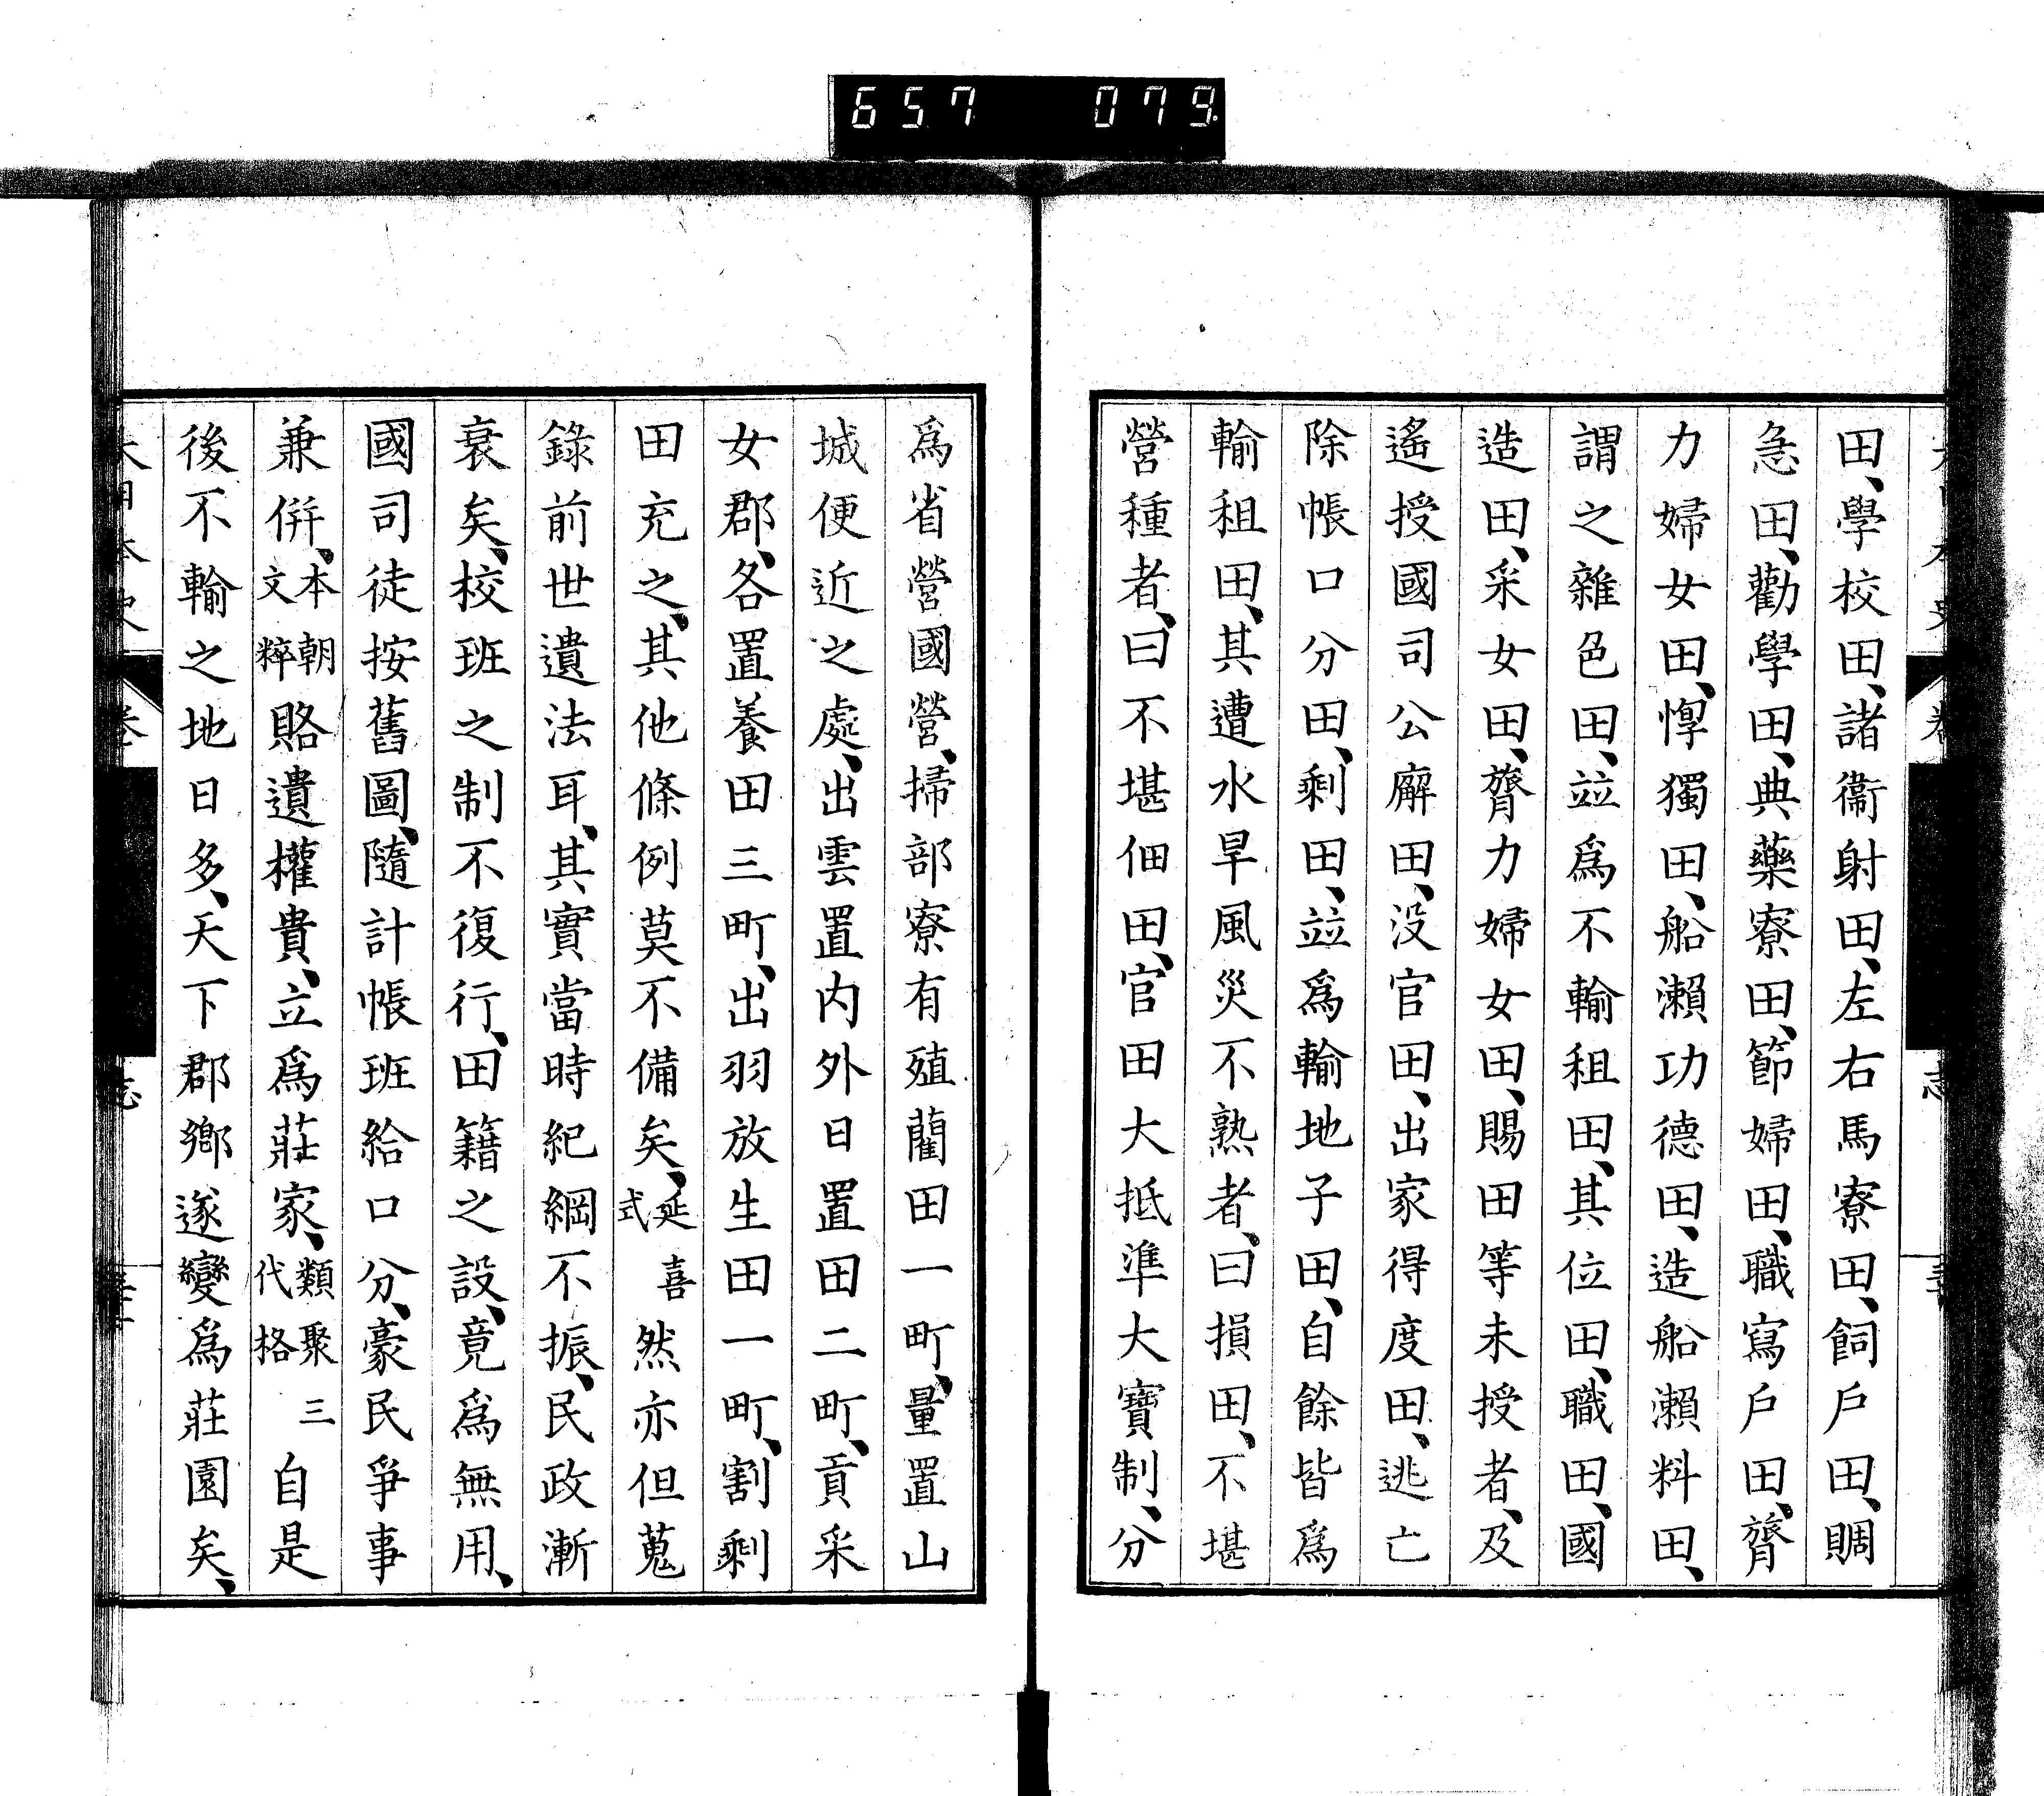 657 079
田、學校田、諸衞射田、左右馬寮田、飼戶田、賙
急田、勸學田、典藥寮田、節婦田、職寫戶田、膂
力婦女田、惸獨田、船瀨功德田、造船瀨料田、
謂之雜色田、竝爲不輸租田、其位田、職田、國
造田、采女田、膂力婦女田、賜田等未授者、及
遙授國司公廨田、沒官田、出家得度田、逃亡
除帳口分田、剩田、竝爲輸地子田、自餘皆爲
輸租田、其遭水旱風災不熟者、曰損田、不堪
營種者、曰不堪佃田、官田大抵準大寶制、分
爲省營國營、掃部寮有殖藺田一町、量置山
城便近之處、出雲置內外日置田二町、貢采
女郡、各置養田三町、出羽放生田一町、割剩
田充之、其他條例莫不備矣、延喜式然亦但蒐
錄前世遺法耳、其實當時紀綱不振、民政漸
衰矣、校班之制不復行、田籍之設、竟爲無用、
國司徒按舊圖、隨計帳班給口分、豪民爭事
兼併、本朝文粹賂遺權貴、立爲莊家、類聚三代格自是
後不輸之地日多、天下郡鄕遂變爲莊園矣、